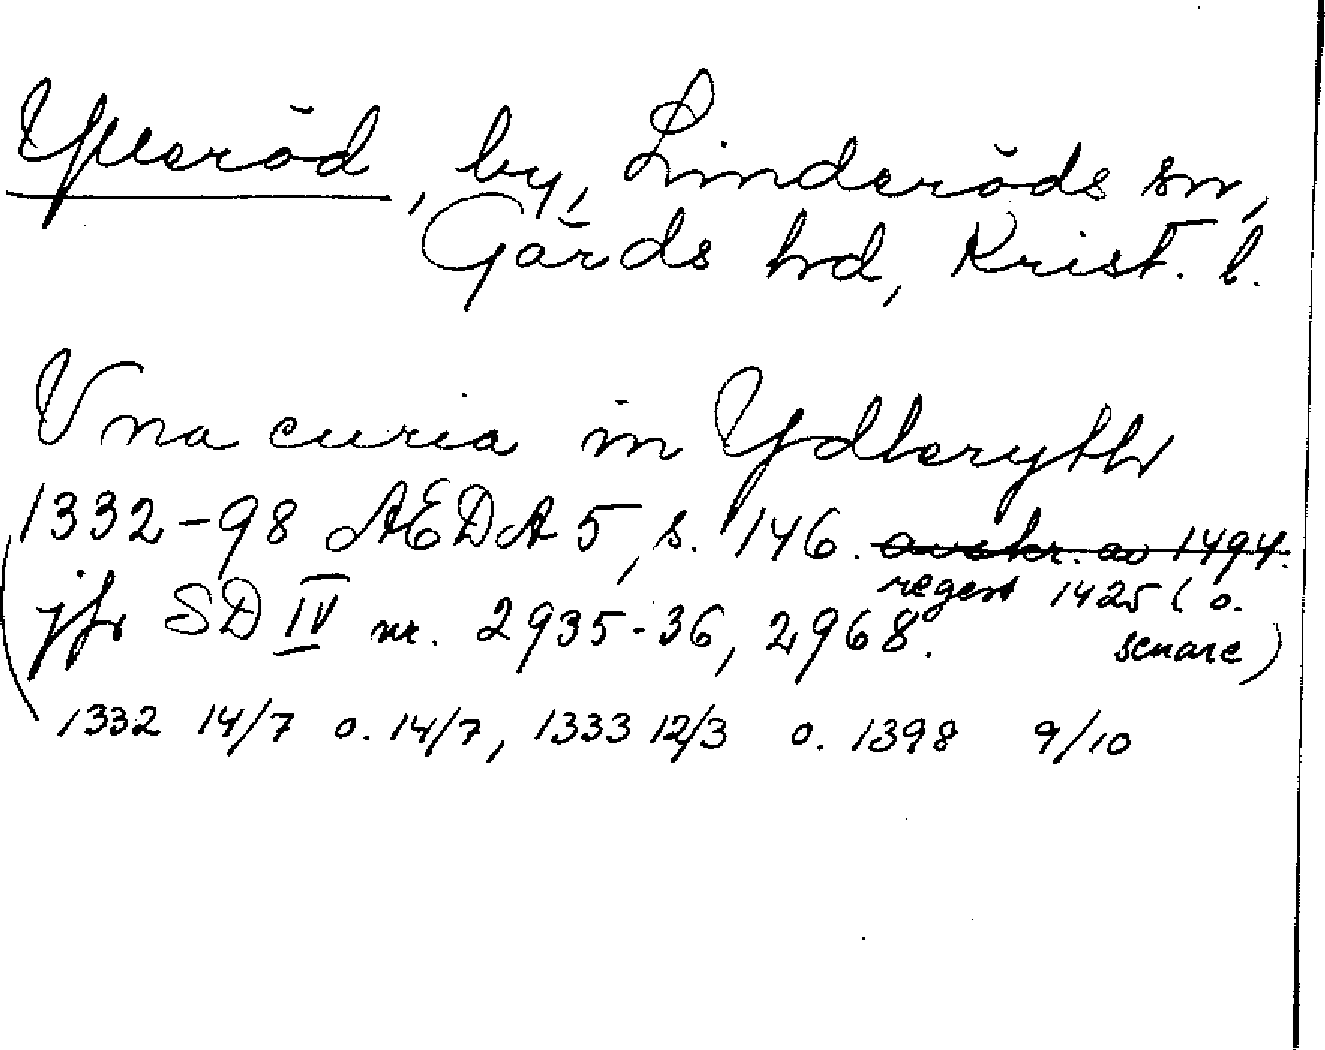 Ylleröd, by, Linderöds sn,
Gärds hd, Krist. l.
Vna curia in Ydleryth
1332-98 AEDA 5, s. 146. avskr. av 1494.
regest 1425 (o.
senare)
(jfr SD IV nr. 2935-36, 2968.
1332 14/7 o. 14/7, 1333 12/3 o. 1398 9/10